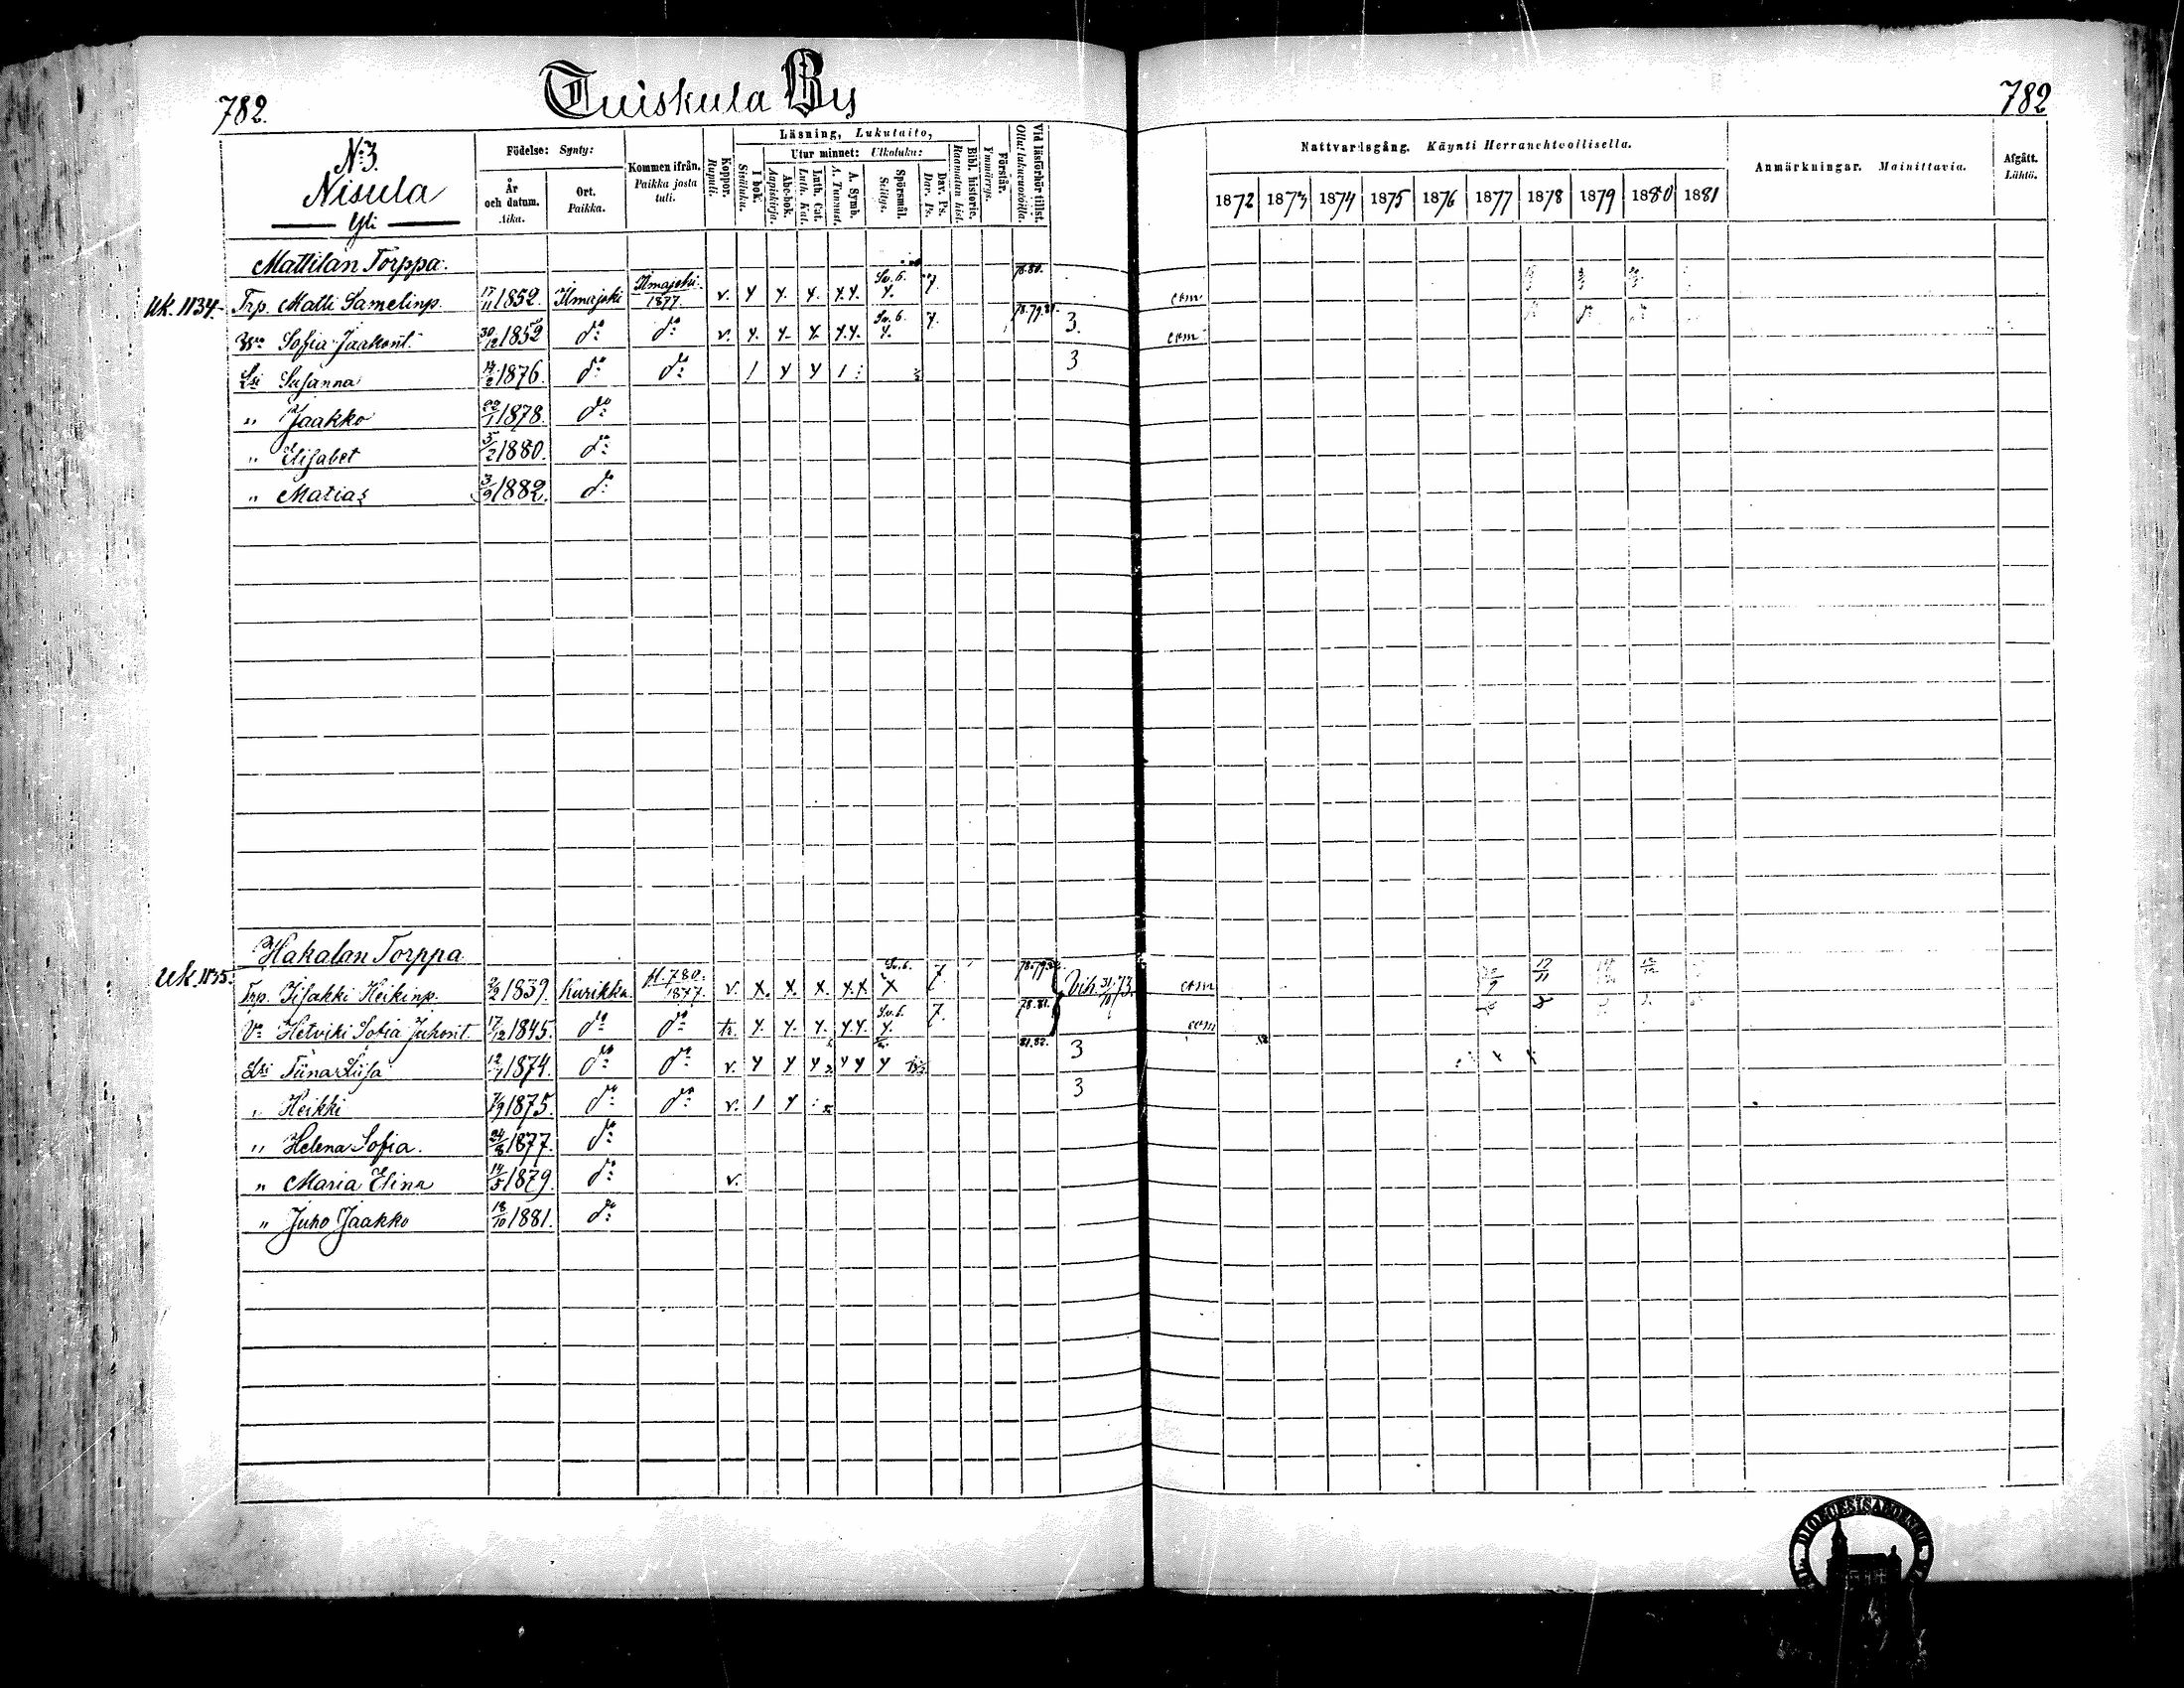 782.
Tuiskula By
782
N:3
Nisula
Yli
Födelse: Synty:
År och datum. Aika.
Ort. Paikka.
Kommen ifrån. Paikka josta tuli.
Koppor. Rupuli.
Läsning, Lukutaito,
I bok. Sisäluku.
Utur minnet: Ulkoluku:
Abc-bok. Aapiskirja.
Luth. Cat. Luth. Kat.
A. Symb. A. Tunnust.
Spörsmål. Selitys.
Dav. Ps. Dav. Ps.
Bibl. historie. Raamatun hist.
Förstår. Ymmärrys.
Vid läsförhör tillst. Ollut lukuwuoilla.
Nattvardsgång. Käynti Herranehtoollisella.
1872 1873 1874 1875 1876 1877 1878 1879 1880 1881
Anmärkningar. Mainittavia.
Afgått. Lähtö.
Mattilan Torppa.
Uk. 1134. Trp. Matti Samelinp. 17/11 1852. Ilmajoki Ilmajoki. 1877. v. Y Y. Y. Y.Y. Sv.b. Y. 7. 78.80. ctm
Vo Sofia Jaakont. 30/12 1852 do do v. Y. Y. Y. Y.Y. Sv.b. Y. 7. 78.79.81. 3. ctm
Lsi Susanna 14/2 1876. do do 1 Y Y 1 3
" Jaakko 22/1 1878. do
" Elisabet 5/2 1880. do
" Matias 3/9 1882. do
Hakalan Torppa
Uk. 1135. Trp. Iisakki Heikinp. 2/2 1839. Kurikka pl. 780. 1877. v. X. X. X. X.X. Sv.b. X 7. Vih. 31/10 73. ctm 12/11
Vo Hetviki Sofia Juhont. 17/12 1845. do do tr. Y. Y. Y. Y.Y. Sv.b. Y. 7. 78.81. ctm
Lsi Tiina Liisa 12/1 1874. do do v. Y Y Y Y Y Y 81.82. 3
" Heikki 7/9 1875. do do v. 1 Y 3
" Helena Sofia. 24/8 1877. do
" Maria Elina 14/5 1879. do v.
" Juho Jaakko 18/10 1881. do